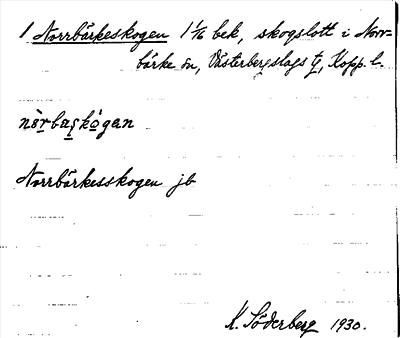 1 Norrbärkeskogen 1 1/16 bek, skogslott i Norr-
bärke sn, Västerbergslags tg, Kopp. l.
Norrbärkesskogen jb
K. Söderberg 1930.